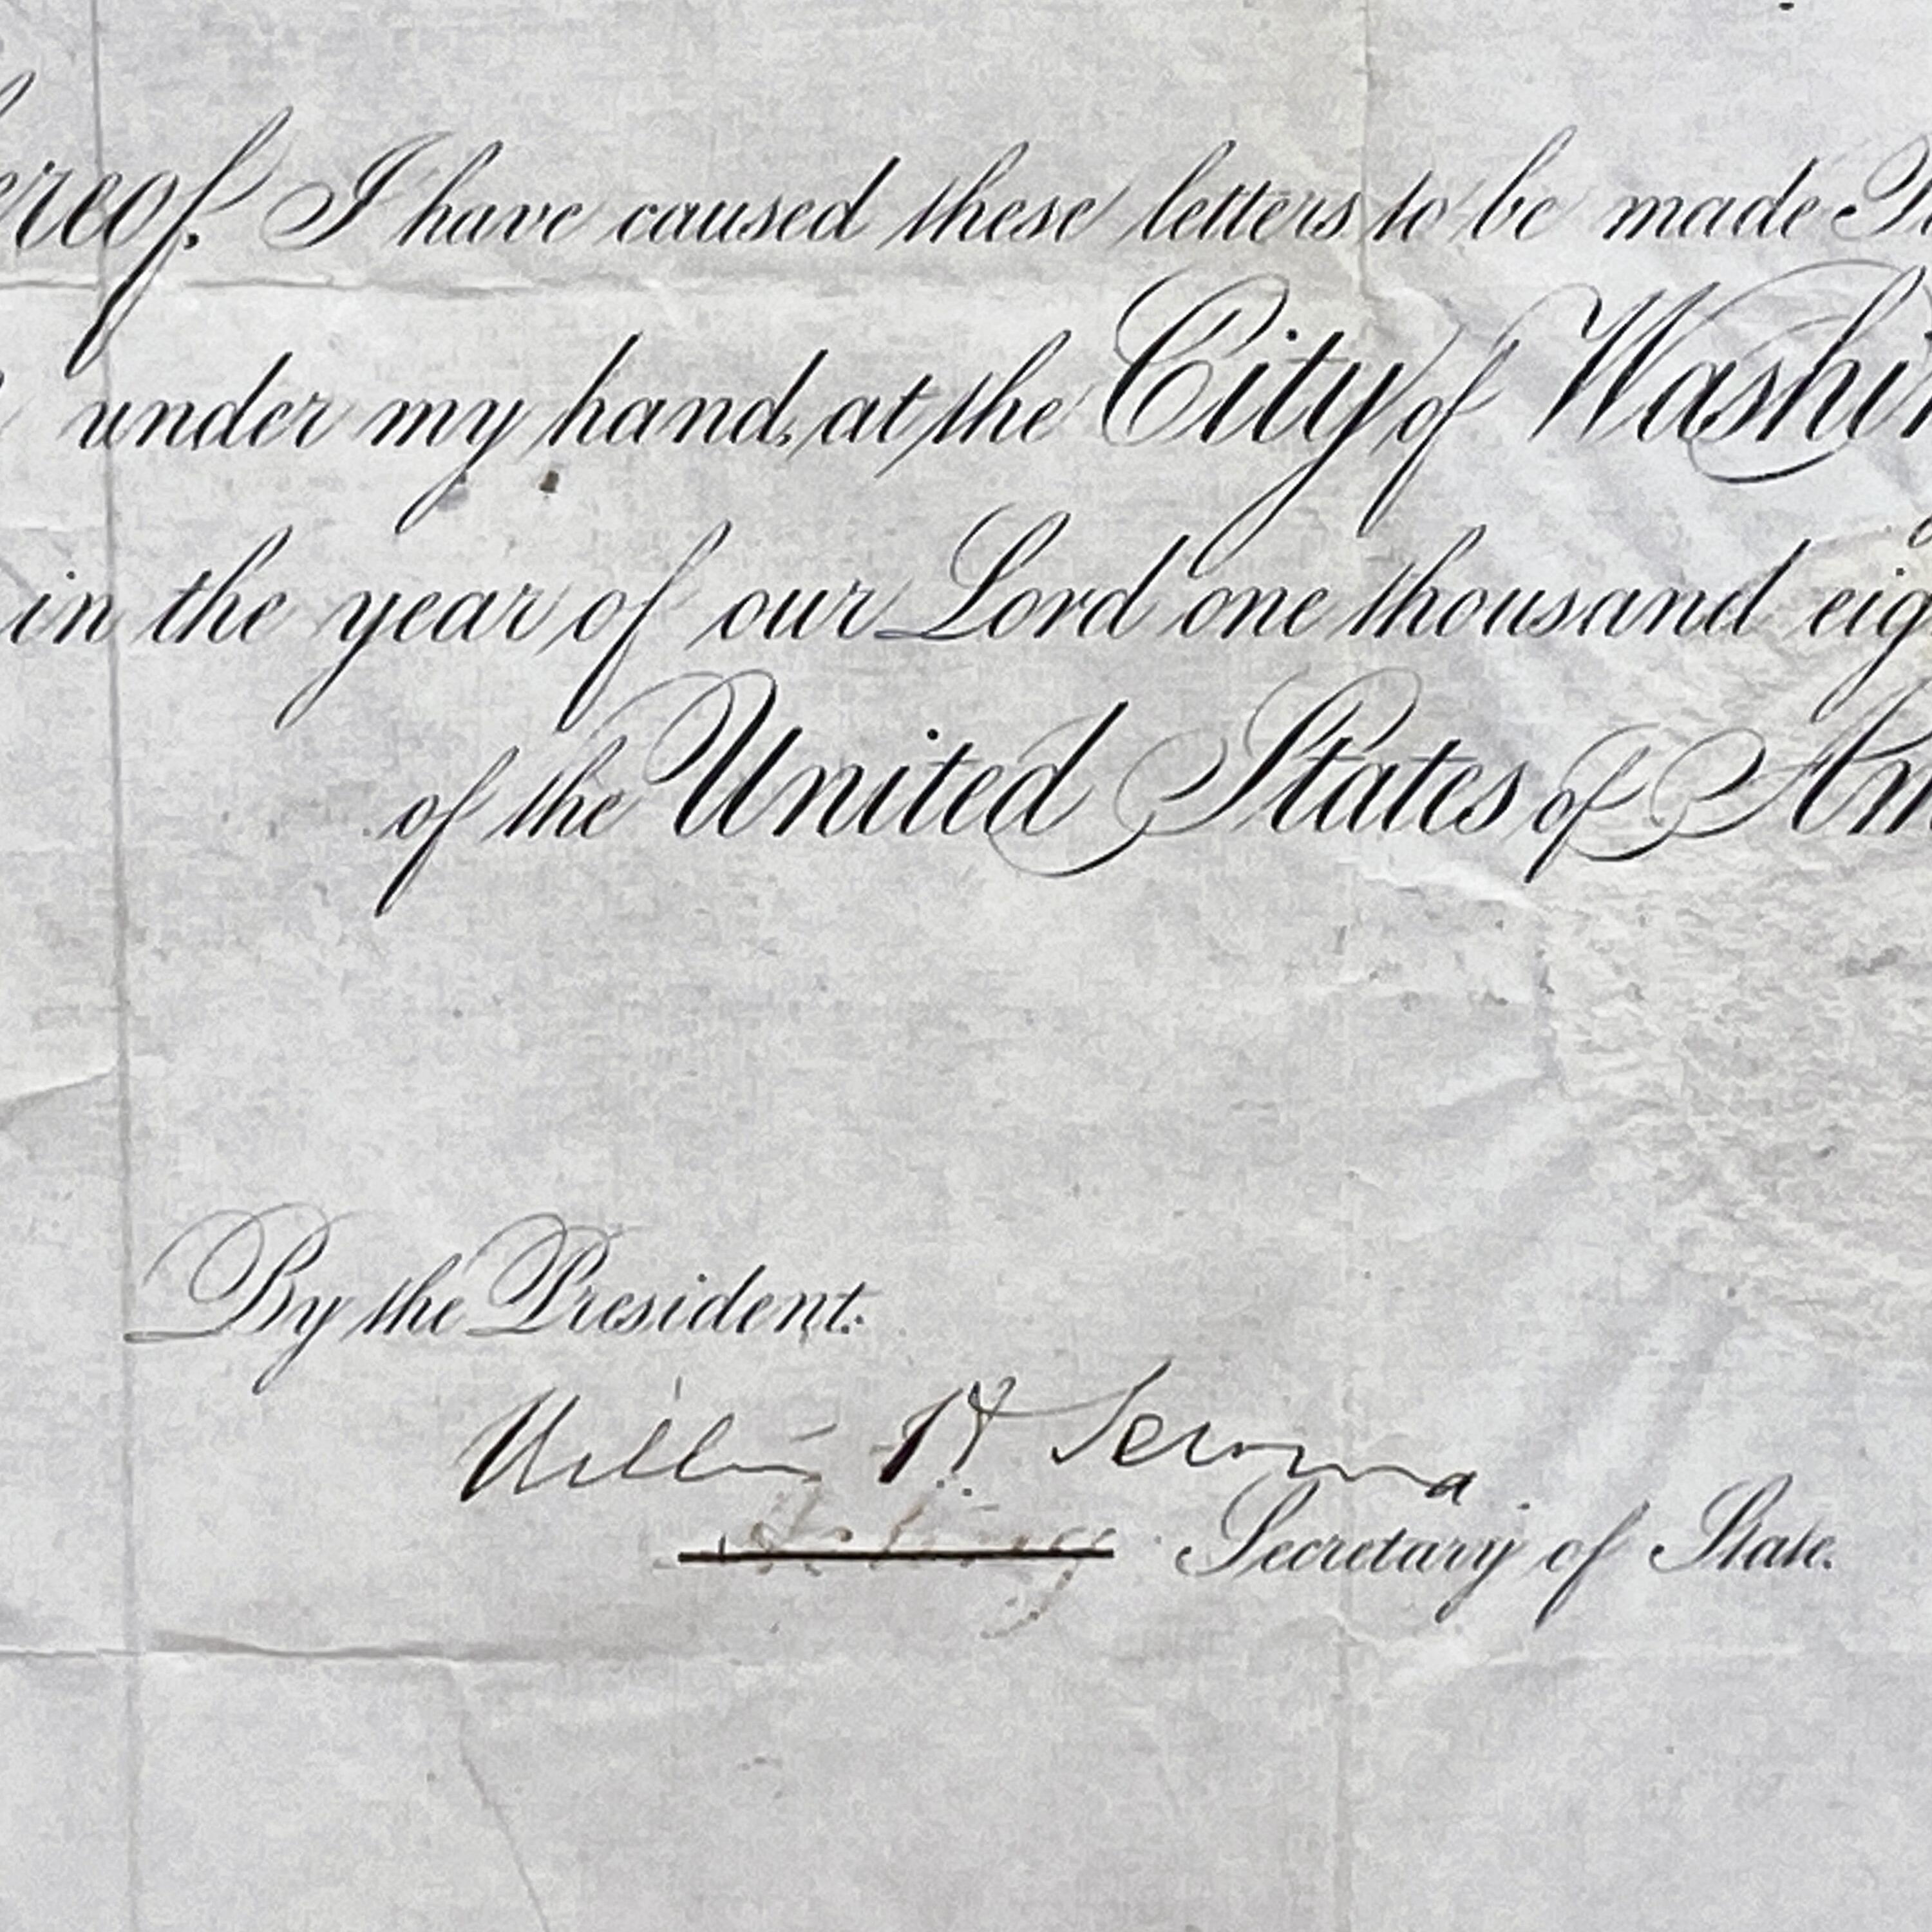 ereof. I have caused these letters to be made
under my hand, at the City of Washin
in the year of our Lord one thousand eig
of the United States of Am
By the President:
William H Seward
Acting Secretary of State.